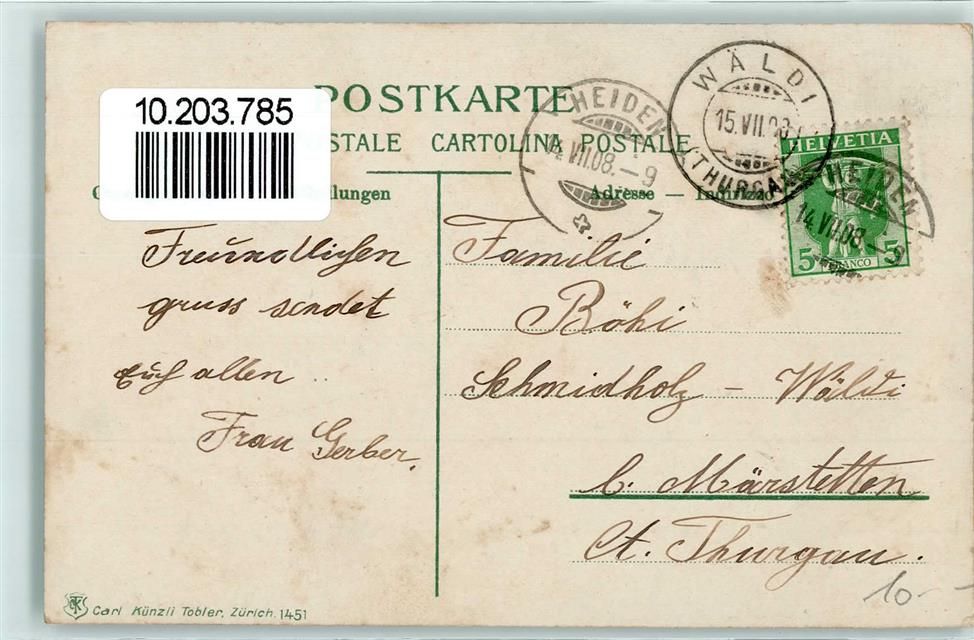 10.203.785
POSTKARTE
STALE CARTOLINA POSTALE
llungen
Adresse — Indirizzo
WÄLDI
15.VII.08
(THURGAU)
HEIDEN
14.VII.08.–9
HELVETIA
5 FRANCO 5
HEIDEN
14.VII.08.–9
Freundlichen
gruss sendet
Euch allen
Frau Gerber.
Familie
Böhi
Schmidholz – Wäldi
b. Märstetten
Ct. Thurgau.
10.-
Carl Künzli Tobler, Zürich. 1451